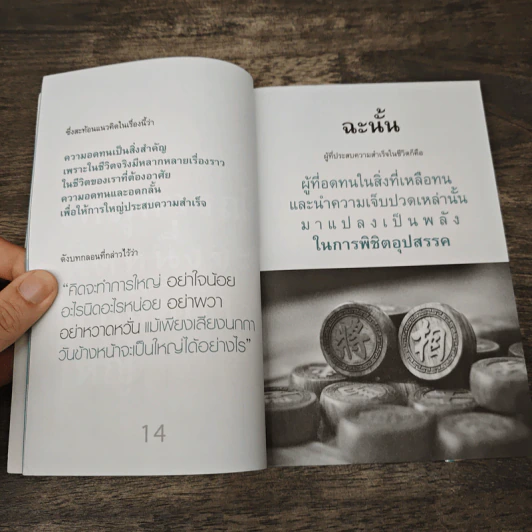 ซึ่งสะท้อนแนวคิดในเรื่องนี้ว่า
ความอดทนเป็นสิ่งสำคัญ
เพราะในชีวิตจริงมีหลากหลายเรื่องราว
ในชีวิตของเราที่ต้องอาศัย
ความอดทนและอดกลั้น
เพื่อให้การใหญ่ประสบความสำเร็จ
ดังบทกลอนที่กล่าวไว้ว่า
“คิดจะทำการใหญ่ อย่าใจน้อย
อะไรนิดอะไรหน่อย อย่าผวา
อย่าหวาดหวั่น แม้เพียงเสียงนกกา
วันข้างหน้าจะเป็นใหญ่ได้อย่างไร”
14
ฉะนั้น
ผู้ที่ประสบความสำเร็จในชีวิตก็คือ
ผู้ที่อดทนในสิ่งที่เหลือทน
และนำความเจ็บปวดเหล่านั้น
มาแปลงเป็นพลัง
ในการพิชิตอุปสรรค
將 相